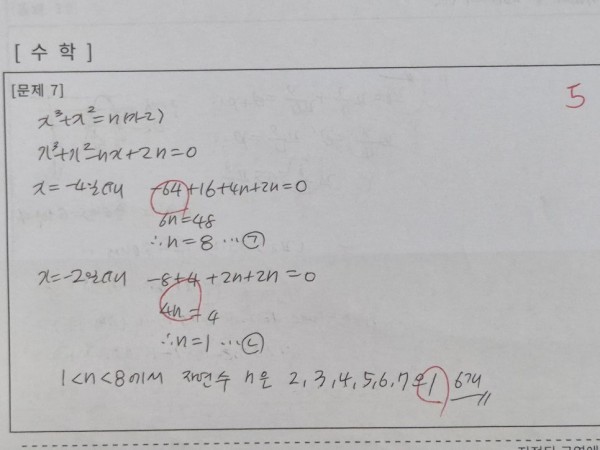 [ 수 학 ]
[문제 7]
5
x³+x²=n(x-2)
x³+x²-nx+2n=0
x=-4일때 -64+16+4n+2n=0
6n=48
∴n=8 …㉠
x=-2일때 -8+4+2n+2n=0
4n=4
∴n=1 …㉡
1<n<8에서 자연수 n은 2,3,4,5,6,7으로 6개